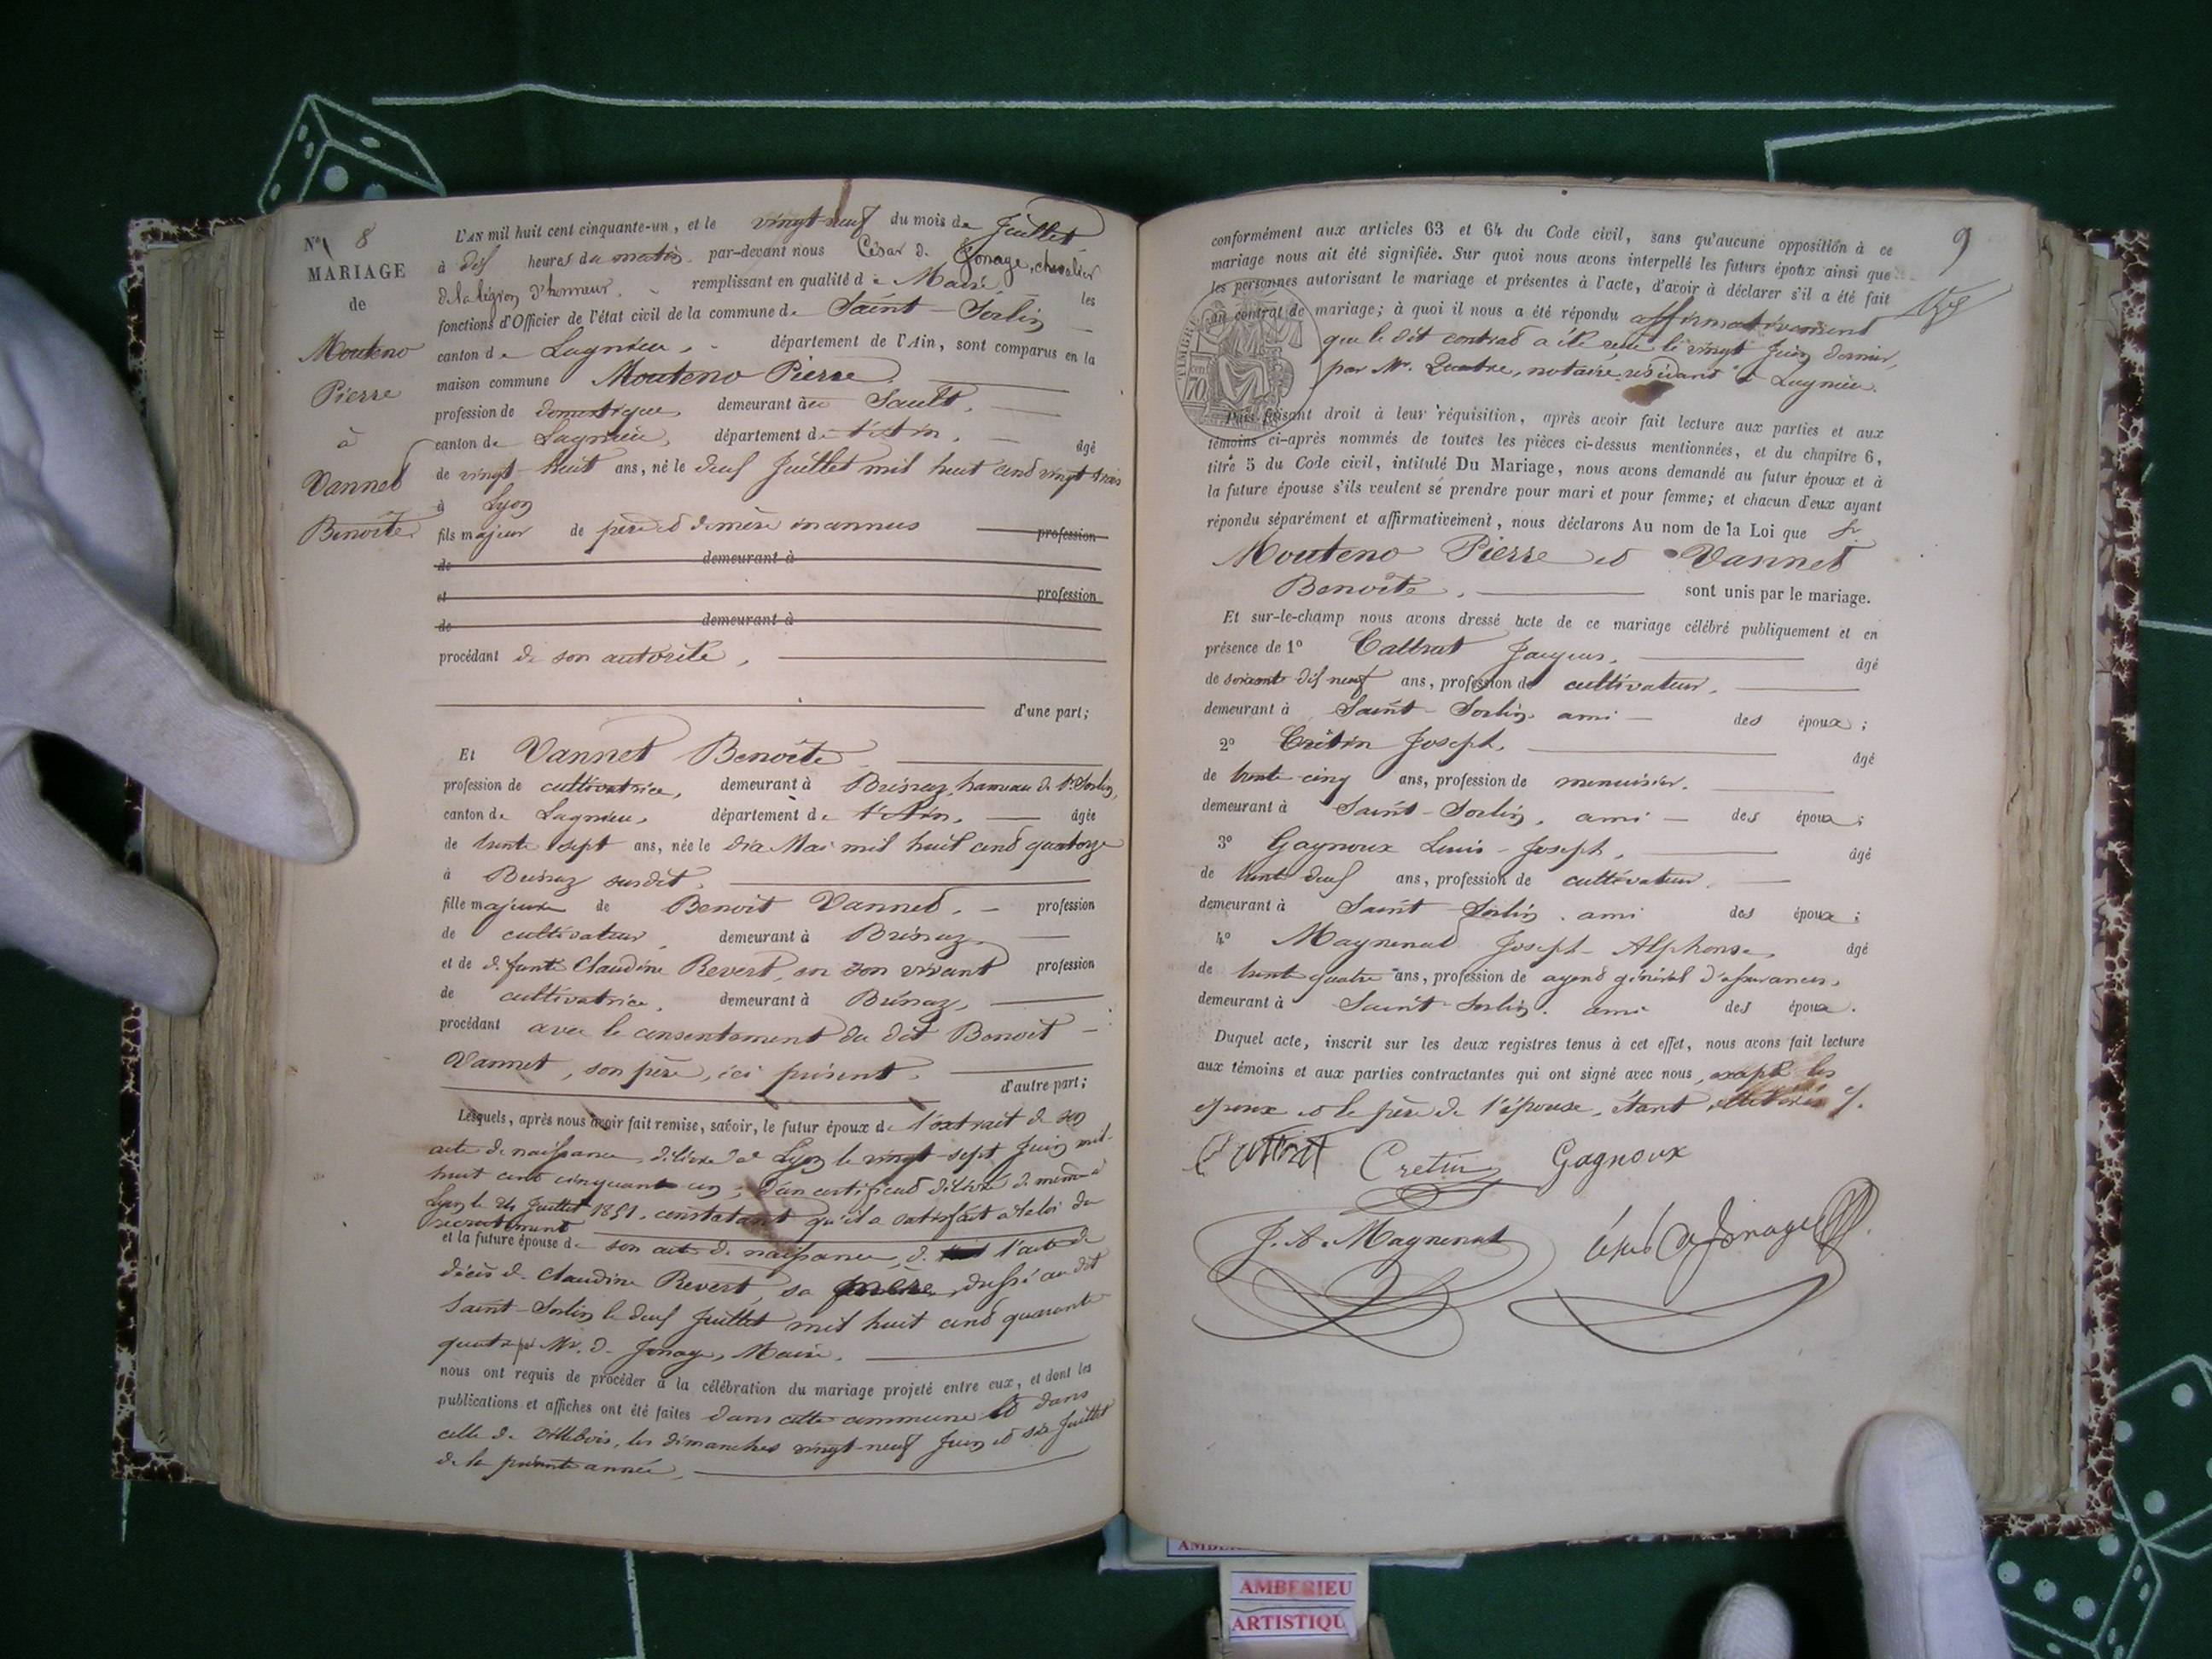 N° 8
MARIAGE
de
Mouteno
Pierre
à
Vannet
Benoîte
L'AN mil huit cent cinquante-un, et le vingt-neuf du mois de Juillet
à dix heures du matin, par-devant nous César de Jonage, chevalier
de la légion d'honneur, remplissant en qualité de Maire les
fonctions d'Officier de l'état civil de la commune de Saint-Sorlin
canton de Lagnieu, département de l'Ain, sont comparus en la
maison commune Mouteno Pierre
profession de domestique, demeurant au Sault,
canton de Lagnieu, département de l'Ain, âgé
de vingt-huit ans, né le deux Juillet mil huit cent vingt trois
à Lyon
fils majeur de père et de mère inconnus profession
de demeurant à
et profession
de demeurant à
procédant de son autorité,
d'une part;
Et Vannet Benoîte
profession de cultivatrice, demeurant à Brénaz, hameau de St Sorlin,
canton de Lagnieu, département de l'Ain, âgée
de trente sept ans, née le dix Mai mil huit cent quatorze
à Brénaz susdit,
fille majeure de Benoit Vannet, profession
de cultivateur, demeurant à Brénaz,
et de défunte Claudine Revert, en son vivant profession
de cultivatrice, demeurant à Brénaz,
procédant avec le consentement du dit Benoit
Vannet, son père, ici présent,
d'autre part;
Lesquels, après nous avoir fait remise, savoir, le futur époux de l'extrait de son
acte de naissance, délivré à Lyon le vingt-sept Juin mil-
huit cent cinquante-un; d'un certificat délivré de même à
Lyon le 24 Juillet 1851, constatant qu'il a satisfait à la loi du
recrutement
et la future épouse de son acte de naissance, de l'acte de
décès de Claudine Revert, sa mère, dressé au dit
Saint-Sorlin le deux Juillet mil huit cent quarante
quatre par Mr. de Jonage, Maire,
nous ont requis de procéder à la célébration du mariage projeté entre eux, et dont les
publications et affiches ont été faites dans cette commune et dans
celle de Villebois, les dimanches vingt-neuf Juin et six Juillet
de la présente année,
9
conformément aux articles 63 et 64 du Code civil, sans qu'aucune opposition à ce
mariage nous ait été signifiée. Sur quoi nous avons interpellé les futurs époux ainsi que
les personnes autorisant le mariage et présentes à l'acte, d'avoir à déclarer s'il a été fait
un contrat de mariage; à quoi il nous a été répondu affirmativement
que le dit contrat a été reçu le vingt Juin dernier,
par Mr. Quatre, notaire, résidant à Lagnieu.
TIMBRE
70
Puis faisant droit à leur réquisition, après avoir fait lecture aux parties et aux
témoins ci-après nommés de toutes les pièces ci-dessus mentionnées, et du chapitre 6,
titre 5 du Code civil, intitulé Du Mariage, nous avons demandé au futur époux et à
la future épouse s'ils veulent se prendre pour mari et pour femme; et chacun d'eux ayant
répondu séparément et affirmativement, nous déclarons Au nom de la Loi que
Mouteno Pierre et Vannet
Benoîte, sont unis par le mariage.
Et sur-le-champ nous avons dressé acte de ce mariage célébré publiquement et en
présence de 1° Jacques, âgé
de soixante dix neuf ans, profession de cultivateur,
demeurant à Saint-Sorlin, ami des époux;
2° Crétin Joseph, âgé
de trente-cinq ans, profession de menuisier,
demeurant à Saint-Sorlin, ami des époux;
3° Gagnoux Louis-Joseph, âgé
de trente deux ans, profession de cultivateur
demeurant à Saint-Sorlin, ami des époux;
4° Magnenat Joseph-Alphonse, âgé
de trente quatre ans, profession de agent général d'assurances,
demeurant à Saint-Sorlin, ami des époux.
Duquel acte, inscrit sur les deux registres tenus à cet effet, nous avons fait lecture
aux témoins et aux parties contractantes qui ont signé avec nous, excepté les
époux et le père de l'épouse, étant illettrés
Cretin Gagnoux
J. A. Magnenat César de Jonage
AMBERIEU
ARTISTIQU